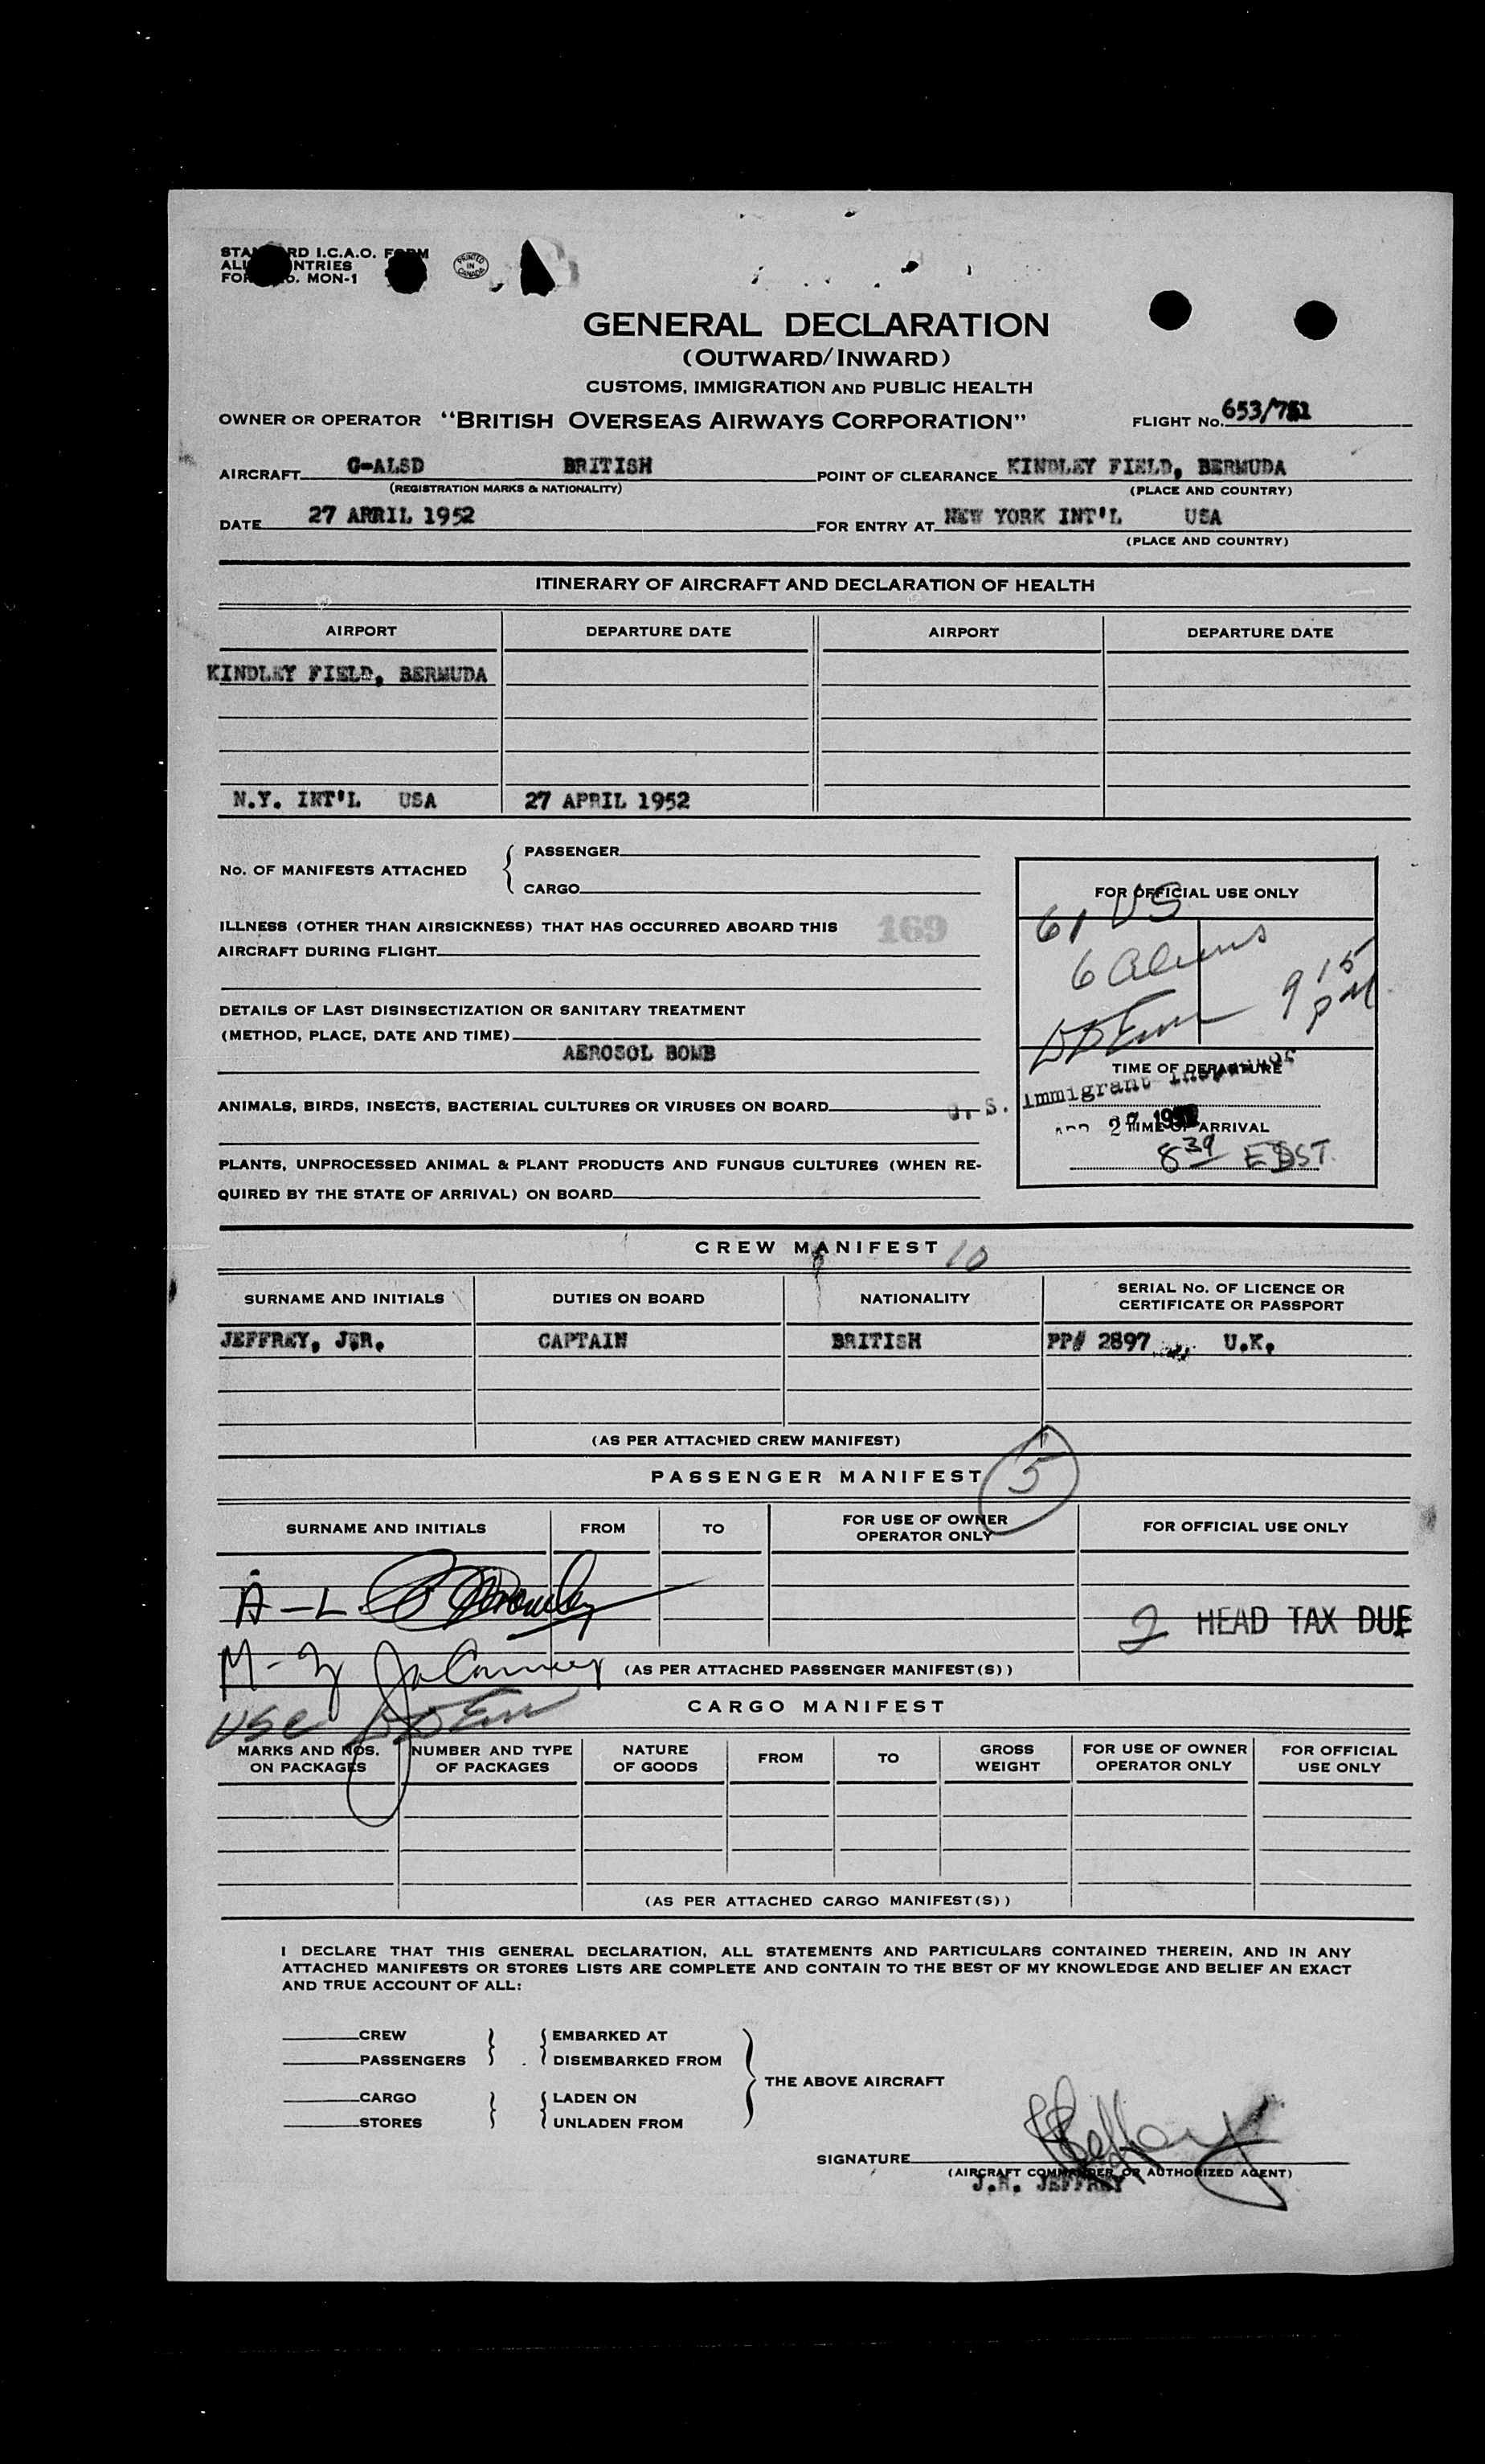 STANDARD I.C.A.O. FORM
ALL COUNTRIES
FORM NO. MON-1
PRINTED IN CANADA
GENERAL DECLARATION
(OUTWARD/INWARD)
CUSTOMS, IMMIGRATION AND PUBLIC HEALTH
OWNER OR OPERATOR "BRITISH OVERSEAS AIRWAYS CORPORATION" FLIGHT No. 653/751
AIRCRAFT G-ALSD BRITISH POINT OF CLEARANCE KINDLEY FIELD, BERMUDA
(REGISTRATION MARKS & NATIONALITY) (PLACE AND COUNTRY)
DATE 27 APRIL 1952 FOR ENTRY AT NEW YORK INT'L USA
(PLACE AND COUNTRY)
ITINERARY OF AIRCRAFT AND DECLARATION OF HEALTH
AIRPORT DEPARTURE DATE AIRPORT DEPARTURE DATE
KINDLEY FIELD, BERMUDA
N.Y. INT'L USA 27 APRIL 1952
No. OF MANIFESTS ATTACHED
PASSENGER
CARGO
ILLNESS (OTHER THAN AIRSICKNESS) THAT HAS OCCURRED ABOARD THIS
AIRCRAFT DURING FLIGHT
169
DETAILS OF LAST DISINSECTIZATION OR SANITARY TREATMENT
(METHOD, PLACE, DATE AND TIME)
AEROSOL BOMB
ANIMALS, BIRDS, INSECTS, BACTERIAL CULTURES OR VIRUSES ON BOARD
PLANTS, UNPROCESSED ANIMAL & PLANT PRODUCTS AND FUNGUS CULTURES (WHEN RE-
QUIRED BY THE STATE OF ARRIVAL) ON BOARD
FOR OFFICIAL USE ONLY
61 US
6 Aliens
9 15 PM
TIME OF DEPARTURE
U. S. Immigrant Inspector
APR 27 1952
TIME OF ARRIVAL
8 39 EDST.
CREW MANIFEST 10
SURNAME AND INITIALS DUTIES ON BOARD NATIONALITY SERIAL No. OF LICENCE OR
CERTIFICATE OR PASSPORT
JEFFREY, J.R. CAPTAIN BRITISH PP# 2897 U.K.
(AS PER ATTACHED CREW MANIFEST)
PASSENGER MANIFEST 5
SURNAME AND INITIALS FROM TO FOR USE OF OWNER
OPERATOR ONLY FOR OFFICIAL USE ONLY
A-L
2 HEAD TAX DUE
M-Z
(AS PER ATTACHED PASSENGER MANIFEST(S))
USC
CARGO MANIFEST
MARKS AND NOS.
ON PACKAGES NUMBER AND TYPE
OF PACKAGES NATURE
OF GOODS FROM TO GROSS
WEIGHT FOR USE OF OWNER
OPERATOR ONLY FOR OFFICIAL
USE ONLY
(AS PER ATTACHED CARGO MANIFEST(S))
I DECLARE THAT THIS GENERAL DECLARATION, ALL STATEMENTS AND PARTICULARS CONTAINED THEREIN, AND IN ANY
ATTACHED MANIFESTS OR STORES LISTS ARE COMPLETE AND CONTAIN TO THE BEST OF MY KNOWLEDGE AND BELIEF AN EXACT
AND TRUE ACCOUNT OF ALL:
CREW EMBARKED AT
PASSENGERS DISEMBARKED FROM
THE ABOVE AIRCRAFT
CARGO LADEN ON
STORES UNLADEN FROM
SIGNATURE
(AIRCRAFT COMMANDER OR AUTHORIZED AGENT)
J.R. JEFFREY